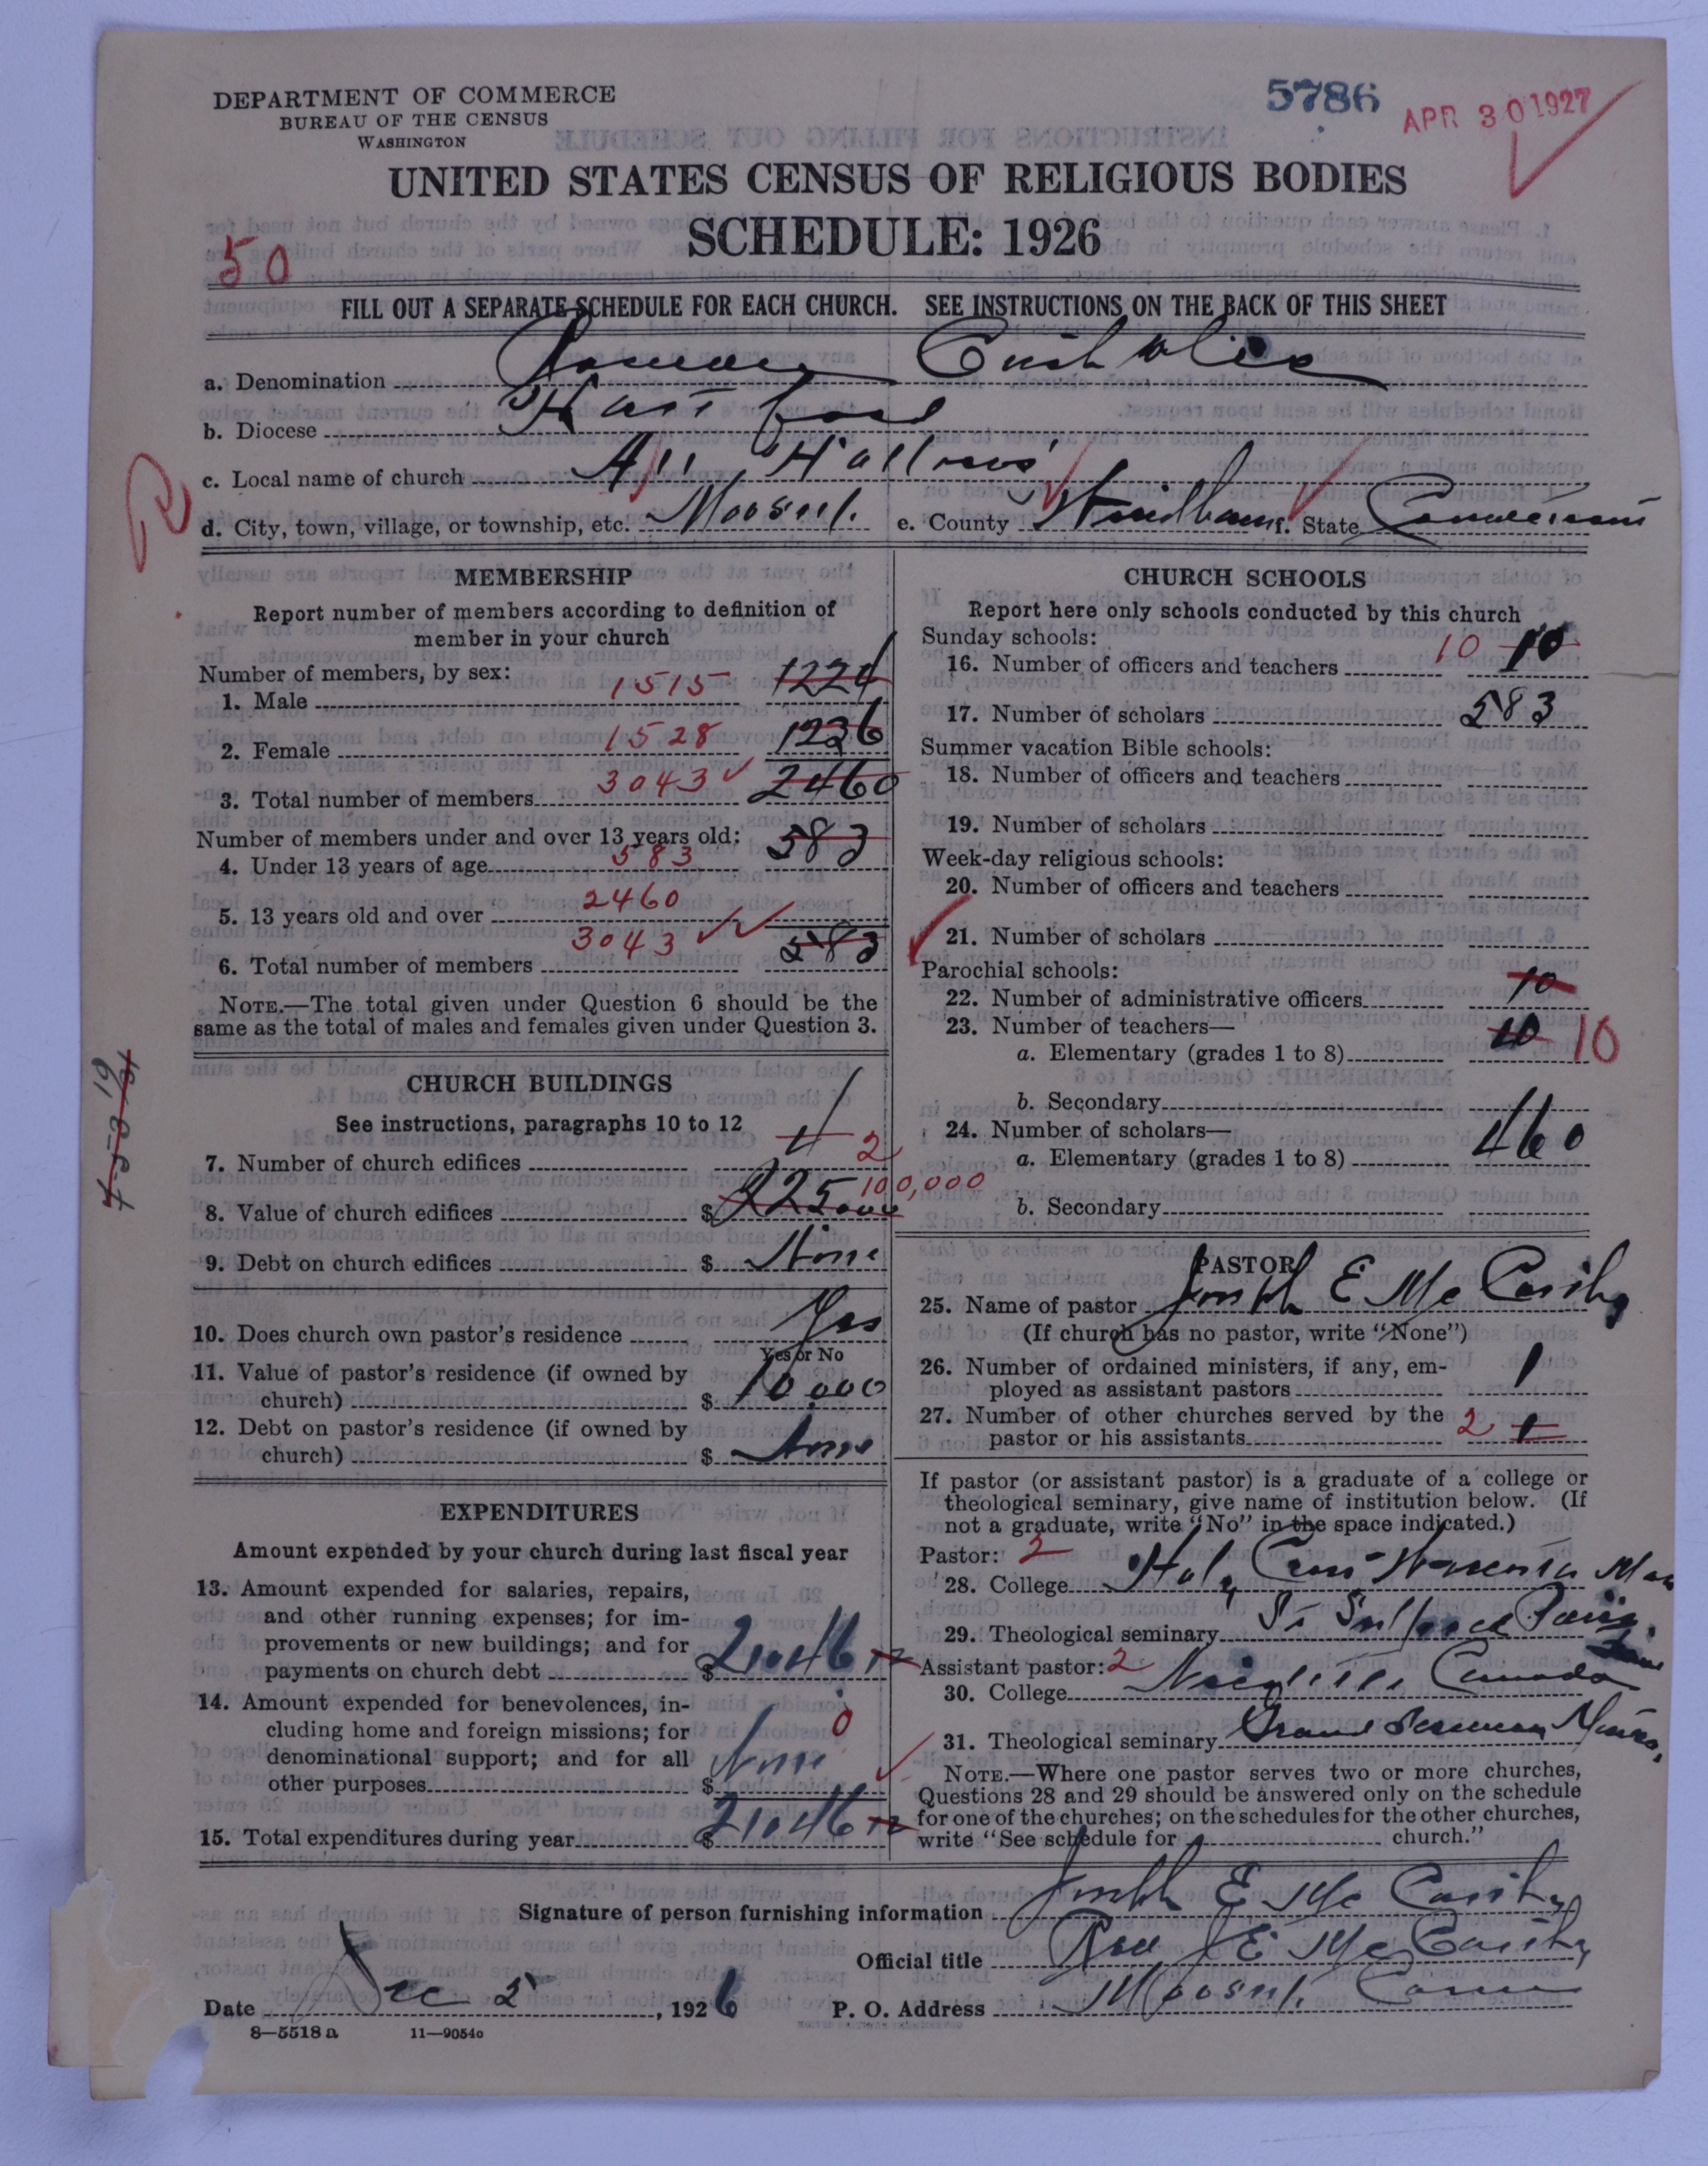 DEPARTMENT OF COMMERCE
BUREAU OF THE CENSUS
WASHINGTON
5786
APR 30 1927
UNITED STATES CENSUS OF RELIGIOUS BODIES
SCHEDULE: 1926
50
FILL OUT A SEPARATE SCHEDULE FOR EACH CHURCH. SEE INSTRUCTIONS ON THE BACK OF THIS SHEET
a. Denomination Roman Catholic
b. Diocese Hartford
c. Local name of church All Hallows
d. City, town, village, or township, etc. Moosup. e. County Windham f. State Connecticut
MEMBERSHIP
Report number of members according to definition of
member in your church
Number of members, by sex:
1. Male 1515 1224
2. Female 1528 1236
3. Total number of members 3043 2460
Number of members under and over 13 years old:
4. Under 13 years of age 583 583
5. 13 years old and over 2460
6. Total number of members 3043 583
NOTE.—The total given under Question 6 should be the
same as the total of males and females given under Question 3.
CHURCH BUILDINGS
See instructions, paragraphs 10 to 12
7. Number of church edifices 2
8. Value of church edifices $ 100,000
9. Debt on church edifices $ None
10. Does church own pastor's residence Yes
Yes or No
11. Value of pastor's residence (if owned by
church) $ 10,000
12. Debt on pastor's residence (if owned by
church) $ None
EXPENDITURES
Amount expended by your church during last fiscal year
13. Amount expended for salaries, repairs,
and other running expenses; for im-
provements or new buildings; and for
payments on church debt $
14. Amount expended for benevolences, in-
cluding home and foreign missions; for
denominational support; and for all
other purposes $ None 0
15. Total expenditures during year $
CHURCH SCHOOLS
Report here only schools conducted by this church
Sunday schools:
16. Number of officers and teachers 10 10
17. Number of scholars 583
Summer vacation Bible schools:
18. Number of officers and teachers
19. Number of scholars
Week-day religious schools:
20. Number of officers and teachers
21. Number of scholars
Parochial schools:
22. Number of administrative officers 10
23. Number of teachers—
a. Elementary (grades 1 to 8) 10 10
b. Secondary
24. Number of scholars—
a. Elementary (grades 1 to 8) 460
b. Secondary
PASTOR
25. Name of pastor Joseph E McCarthy
(If church has no pastor, write "None")
26. Number of ordained ministers, if any, em-
ployed as assistant pastors 1
27. Number of other churches served by the
pastor or his assistants 2 1
If pastor (or assistant pastor) is a graduate of a college or
theological seminary, give name of institution below. (If
not a graduate, write "No" in the space indicated.)
Pastor: 2
28. College Holy Cross Worcester Mass
29. Theological seminary St Sulpice Paris
Assistant pastor: 2
30. College Canada
31. Theological seminary Grand Seminary
NOTE.—Where one pastor serves two or more churches,
Questions 28 and 29 should be answered only on the schedule
for one of the churches; on the schedules for the other churches,
write "See schedule for church."
Signature of person furnishing information Joseph E McCarthy
Official title Rev J E McCarthy
Date Dec 2 , 1926 P. O. Address Moosup. Conn
8—5518 a 11—9054o